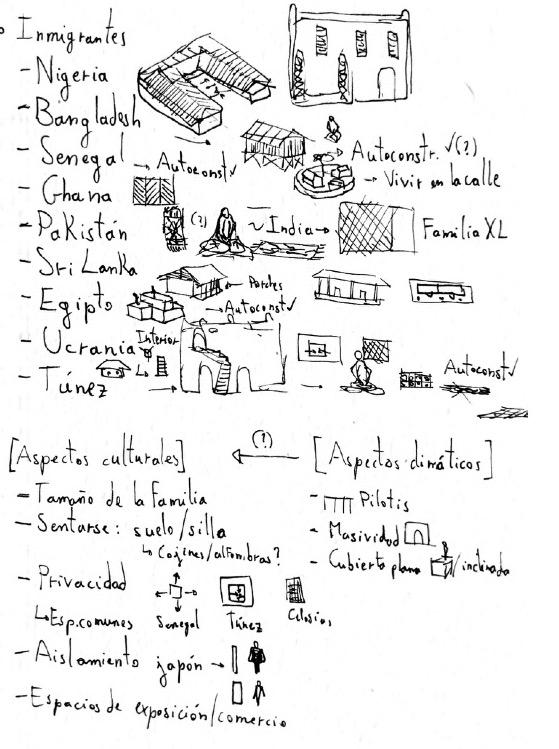 Inmigrantes
- Nigeria
- Bangladesh
- Senegal → Autoconst ✓
Autoconstr. ✓(?)
→ Vivir en la calle
- Ghana
- Pakistán (?) ~ India → Familia XL
- Sri Lanka
← Porches
- Egipto → Autoconst ✓
- Ucrania Interior
- Túnez
Autoconst ✓
[Aspectos culturales] (?) [Aspectos climáticos]
- Tamaño de la Familia
- Pilotis
- Sentarse: suelo/silla
↳ Cojines/alfombras?
- Masividad
- Cubierta plana /inclinada
- Privacidad
↳ Esp. comunes Senegal Túnez Celosías
- Aislamiento japón →
- Espacios de exposición/comercio